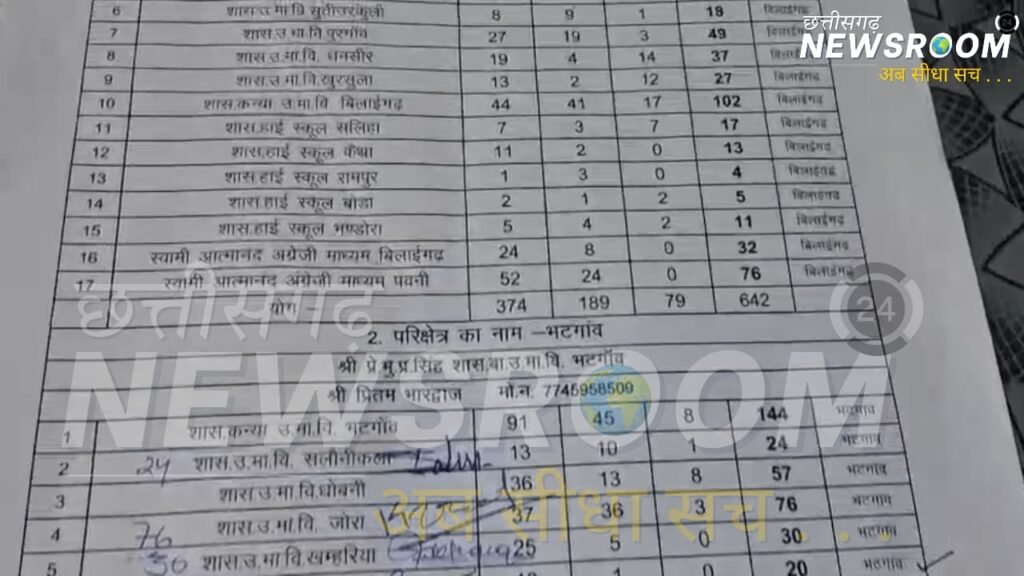 6 शास.उ.मा.वि.सुतीउरकुली 8 9 1 18 बिलाईगढ़
7 शास.उ.मा.वि.पुरगॉव 27 19 3 49 बिलाईगढ़
8 शास.उ.मा.वि. धनसीर 19 4 14 37 बिलाईगढ़
9 शास.उ.मा.वि.खुरसुला 13 2 12 27 बिलाईगढ़
10 शास.कन्या उ.मा.वि बिलाईगढ़ 44 41 17 102 बिलाईगढ़
11 शास.हाई स्कूल सलिहा 7 3 7 17 बिलाईगढ़
12 शास.हाई स्कूल कैथा 11 2 0 13 बिलाईगढ़
13 शास.हाई स्कूल रामपुर 1 3 0 4 बिलाईगढ़
14 शास.हाई स्कूल बोडा 2 1 2 5 बिलाईगढ़
15 शास.हाई स्कूल भण्डोरा 5 4 2 11 बिलाईगढ़
16 स्वामी आत्मानद अग्रेजी माध्यम बिलाईगढ़ 24 8 0 32 बिलाईगढ़
17 स्वामी आत्मानद अंग्रेजी माध्यम पवनी 52 24 0 76 बिलाईगढ़
योग 374 189 79 642
2. परिक्षेत्र का नाम –भटगॉव
श्री प्रे.मु.प्र.सिंह शास.बा.उ.मा.वि. भटगॉव
श्री प्रितम भारद्वाज मो.न. 7745958509
1 शास.कन्या उ.मा.वि. भटगॉव 91 45 8 144 भटगाव
2 24 शास.उ.मा.वि. सलौनीकला 13 10 1 24 भटगाव
3 शास.उ.मा.वि.धोबनी 36 13 8 57 भटगाव
4 76 शास.उ.मा.वि. जोरा 37 36 3 76 भटगाव
5 30 शास.उ.मा.वि.खम्हरिया 25 5 0 30 भटगाव
20 भटगाव
छत्तीसगढ़ 24
NEWSROOM
अब सीधा सच . . .
छत्तीसगढ़ 24
NEWSROOM
अब सीधा सच . . .